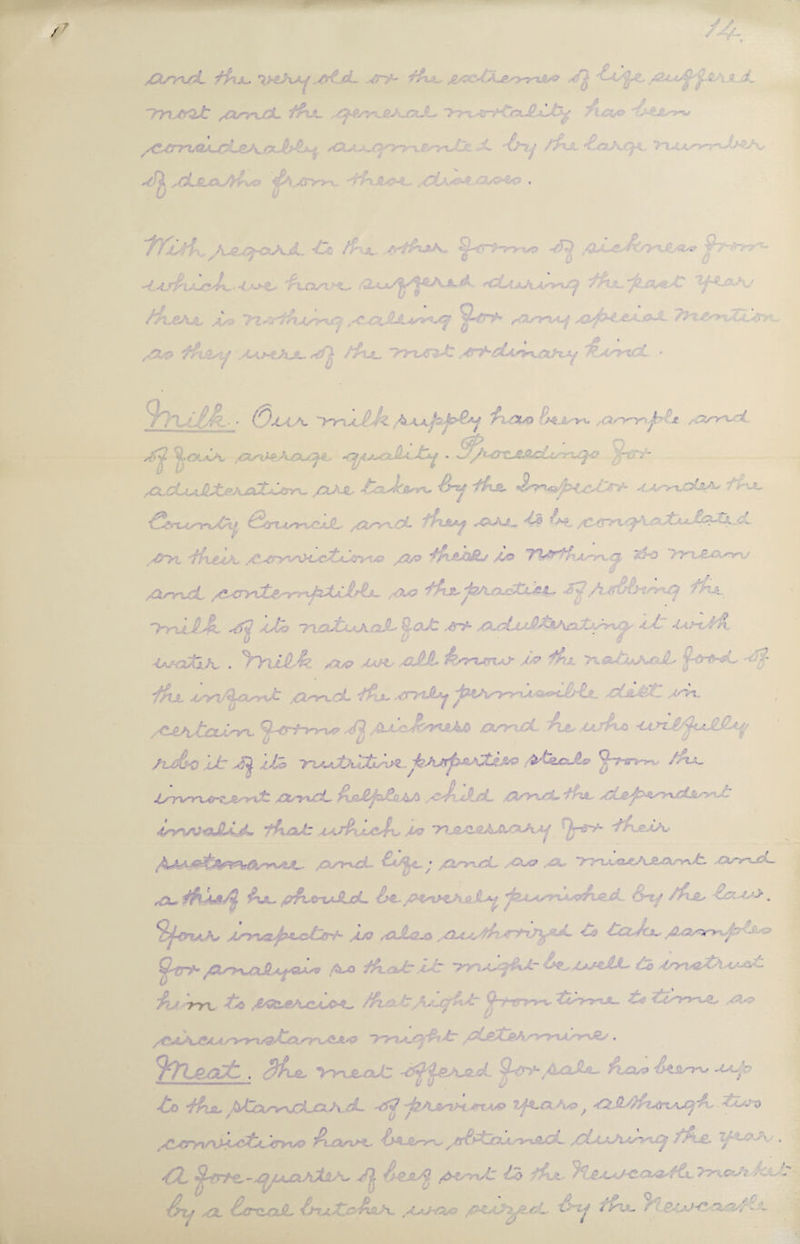 14.
and the very old or the extremes of life suffered
most and the general mortality has been
considerably augmented by the large number
of deaths from these diseases.
With regard to the other forms of sickness from
which we have suffered during the past year
there is nothing calling for any special mention
as they were of the most ordinary kind.
Milk. Our milk supply has been ample and
of fair average quality. Proceedings for
adulteration are taken by the Inspector under the
County Council and they are to be congratulated
on their convictions as there is nothing so mean
and contemptible as the practice of robbing the
milk of its natural fat or adulterating it with
water. Milk as we all know is the natural food of
the infant and the only permissible diet in
certain forms of sickness and he who wilfully
robs it of its nutritive properties steals from the
innocent and helpless child and the dependent
invalid that which is necessary for their
sustenance and life; and as a miscreant and
a thief he should be severely punished by the law.
Your inspector is also authorized to take samples
for analysis so that it might be well to instruct
him to exercise that right from time to time as
circumstances might determine.
Meat. The meat offered for sale has been up
to the standard of previous years, although two
convictions have been obtained during the year.
A fore-quarter of beef sent to the Newcastle market
by a local butcher was seized by the Newcastle